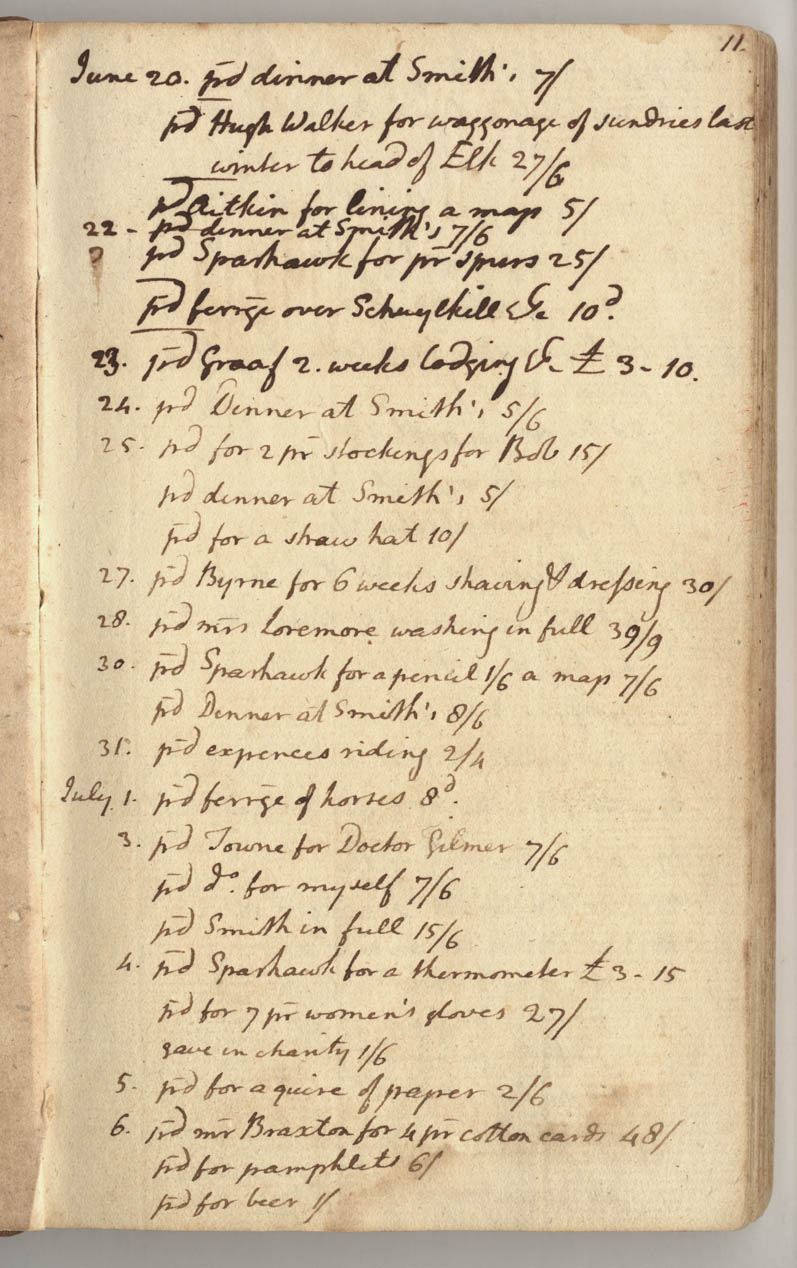 11.
June 20. pd dinner at Smith's 7/
pd Hugh Walker for waggonage of sundries last
winter to head of Elk 27/6
pd Aitkin for lining a map 5/
22 - pd dinner at Smith's 7/6
pd Sparhawk for pr spurs 25/
pd ferrge over Schuylkill &c 10d.
23. pd Graaf 2. weeks lodging &c £ 3 - 10.
24. pd Dinner at Smith's 5/6
25. pd for 2 pr stockings for Bob 15/
pd dinner at Smith's 5/
pd for a straw hat 10/
27. pd Byrne for 6 weeks shaving & dressing 30/
28. pd mrs Loremore washing in full 39/9
30. pd Sparhawk for a pencil 1/6 a map 7/6
pd Dinner at Smith's 8/6
31. pd expences riding 2/4
July 1. pd ferrge of horses 8d.
3. pd Towne for Doctor Gilmer 7/6
pd do. for myself 7/6
pd Smith in full 15/6
4. pd Sparhawk for a thermometer £ 3 - 15
pd for 7 pr women's gloves 27/
gave in charity 1/6
5. pd for a quire of paper 2/6
6. pd mr Braxton for 4 pr cotton cards 48/
pd for pamphlets 6/
pd for beer 1/